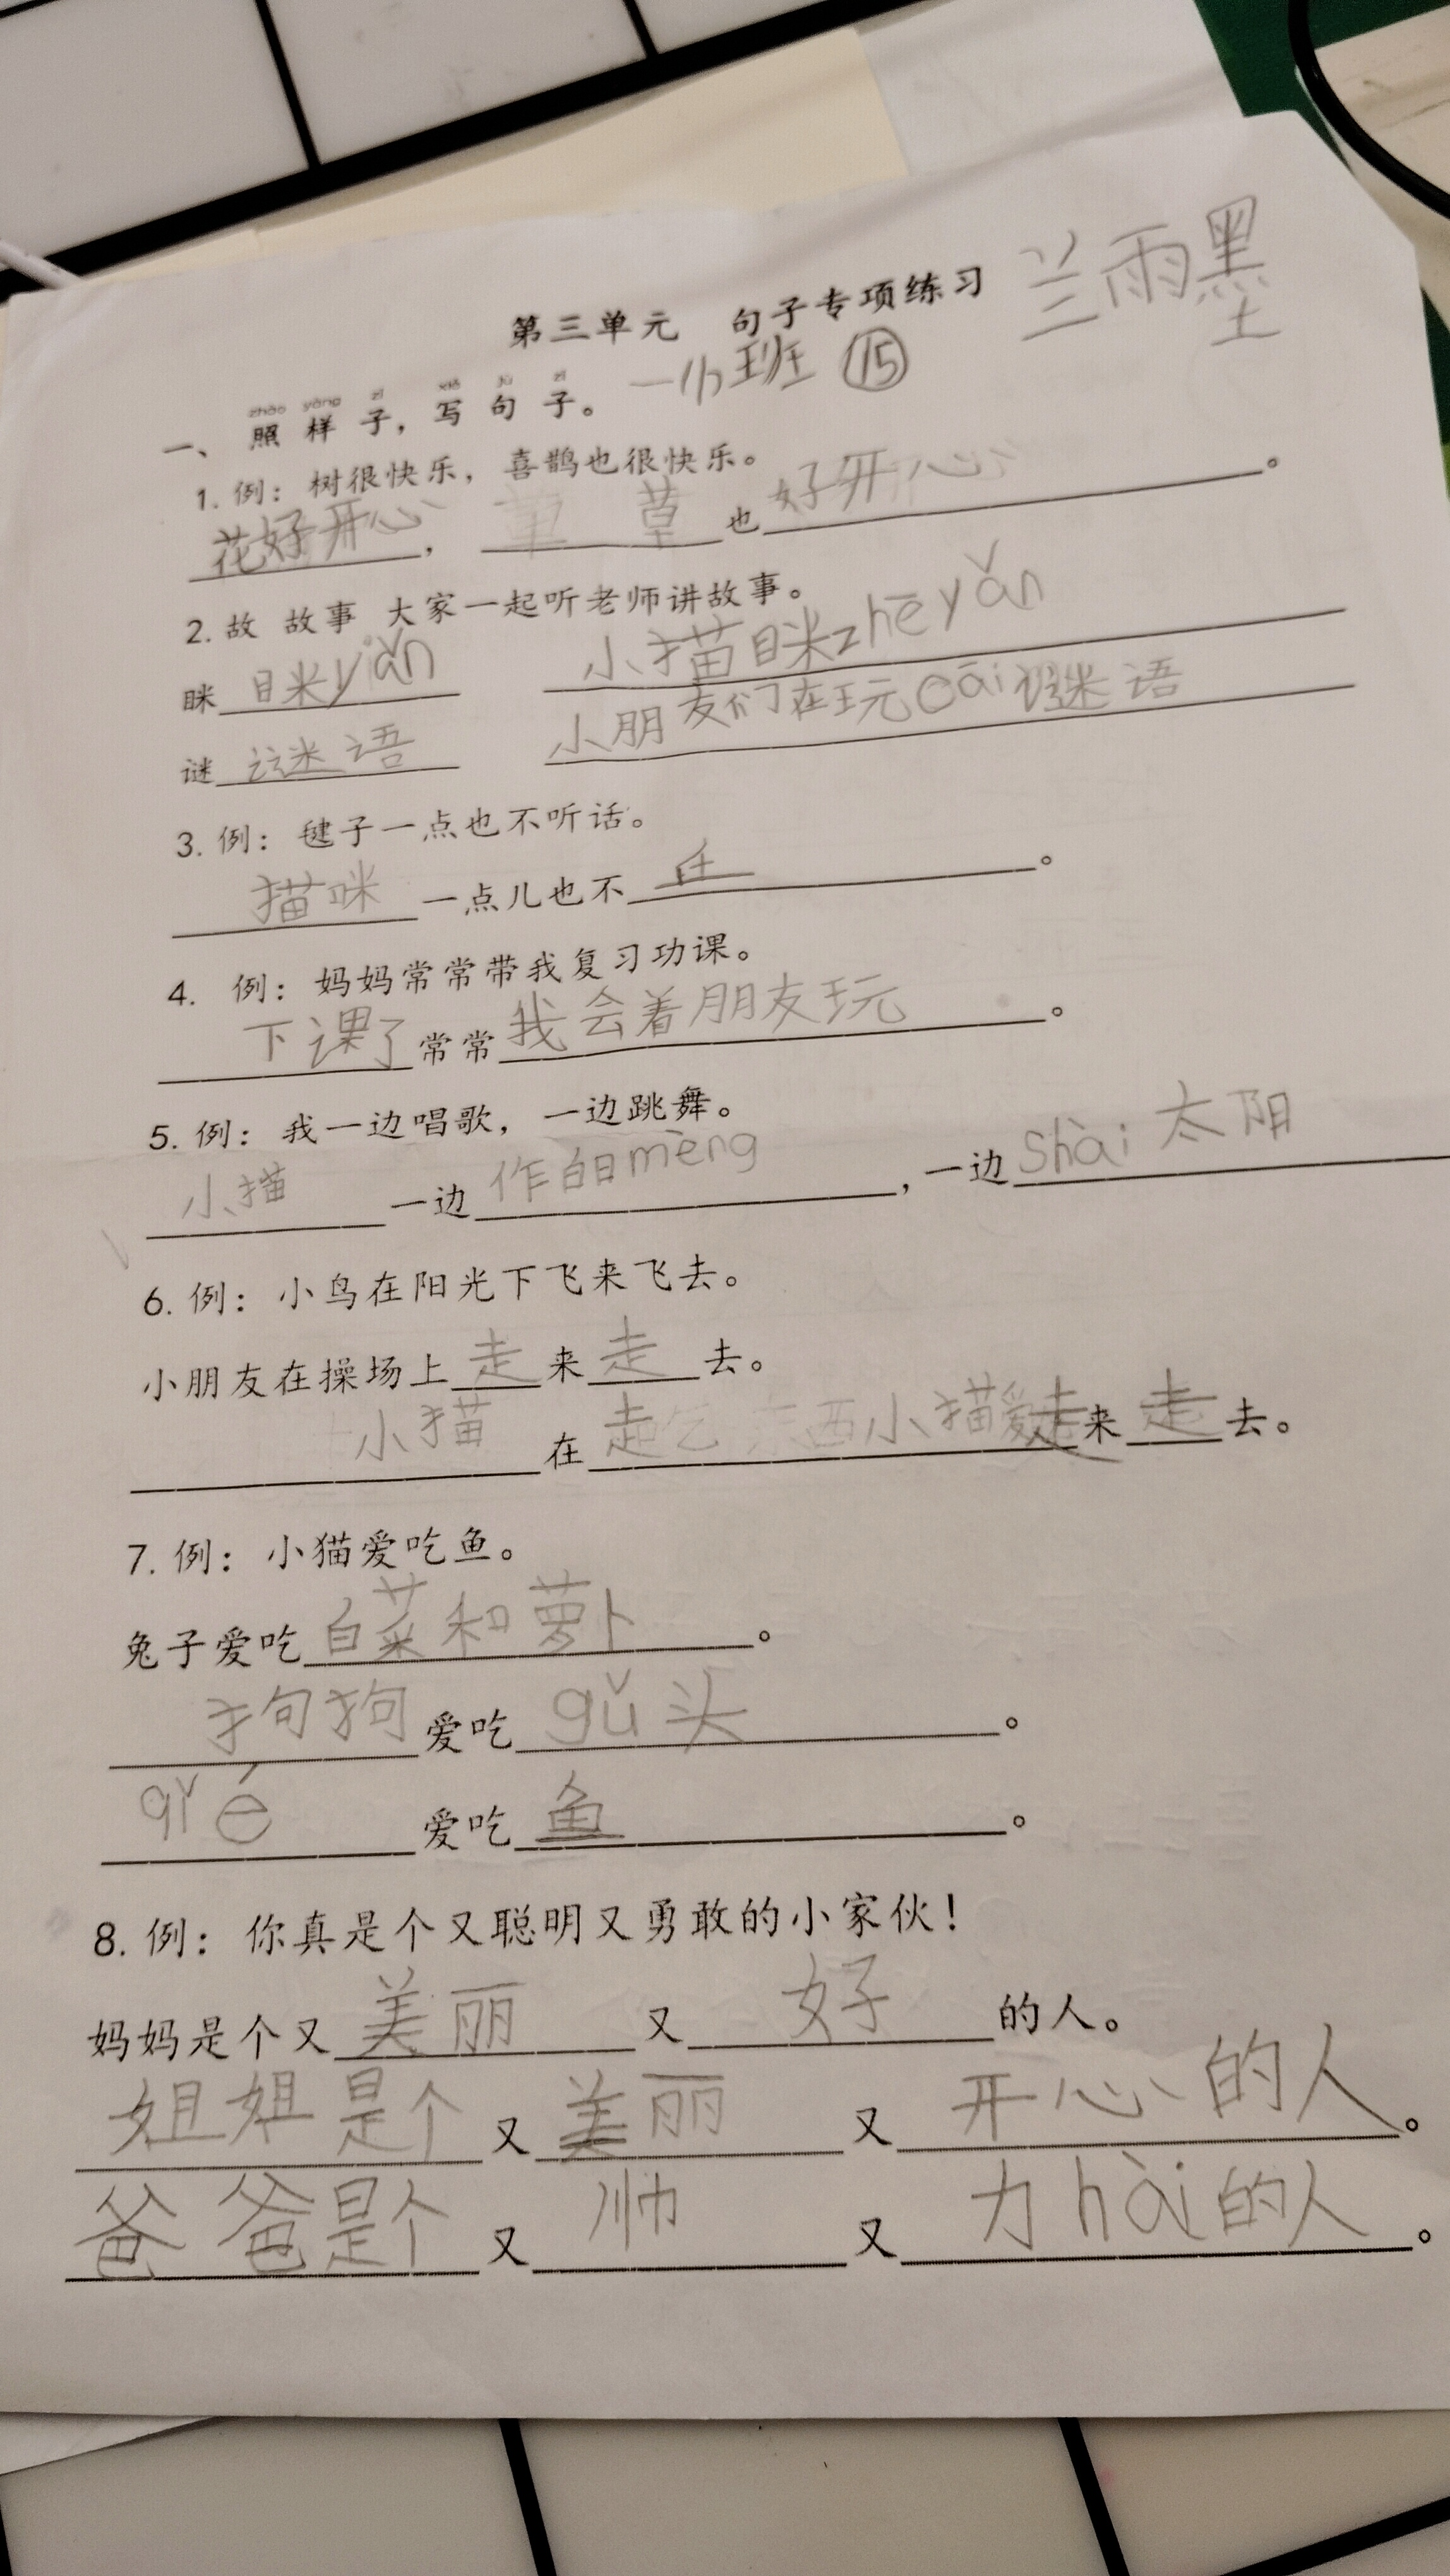 第三单元 句子专项练习 兰雨墨
一(1)班 ⑮
zhào yàng zi xiě jù zi
一、照样子，写句子。
1. 例：树很快乐，喜鹊也很快乐。
花好开心， 草也好开心。
2. 故 故事 大家一起听老师讲故事。
眯 眯yǎn 小猫眯zhēyǎn
谜 谜语 小朋友们在玩cāi谜语
3. 例：毽子一点也不听话。
猫咪一点儿也不。
4. 例：妈妈常常带我复习功课。
下课了常常我会着朋友玩。
5. 例：我一边唱歌，一边跳舞。
小猫一边作白日mèng，一边shài太阳
6. 例：小鸟在阳光下飞来飞去。
小朋友在操场上走来走去。
小猫在走来走去。
7. 例：小猫爱吃鱼。
兔子爱吃白菜和萝卜。
狗狗爱吃gǔ头。
qǐ é爱吃鱼。
8. 例：你真是个又聪明又勇敢的小家伙！
妈妈是个又美丽又好的人。
姐姐是个又美丽又开心的人。
爸爸是个又帅又力hài的人。